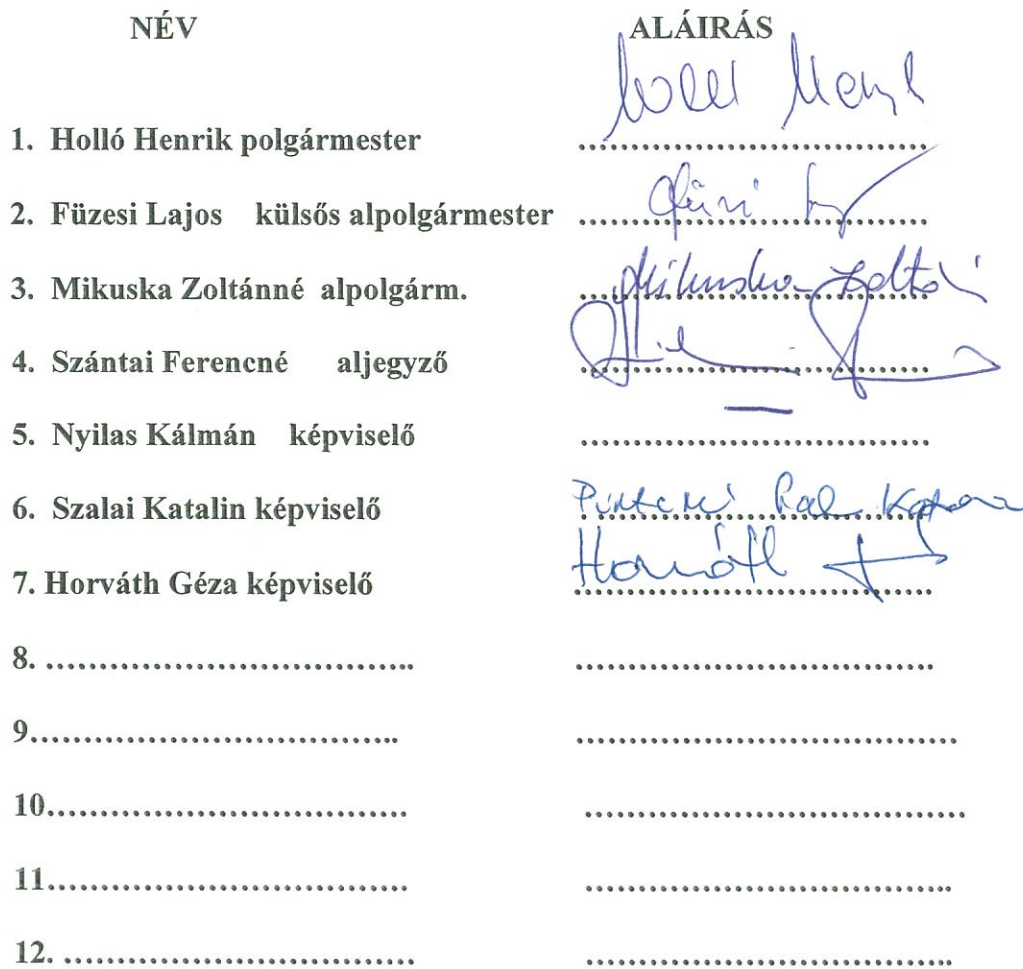 NÉV ALÁIRÁS
1. Holló Henrik polgármester ..............................
2. Füzesi Lajos külsős alpolgármester ..............................
3. Mikuska Zoltánné alpolgárm. .............................. Mikuska Zoltán
4. Szántai Ferencné aljegyző ..............................
5. Nyilas Kálmán képviselő ..............................
6. Szalai Katalin képviselő ..............................
7. Horváth Géza képviselő .............................. Horváth
8. .............................. ..............................
9. .............................. ..............................
10. .............................. ..............................
11. .............................. ..............................
12. .............................. ..............................